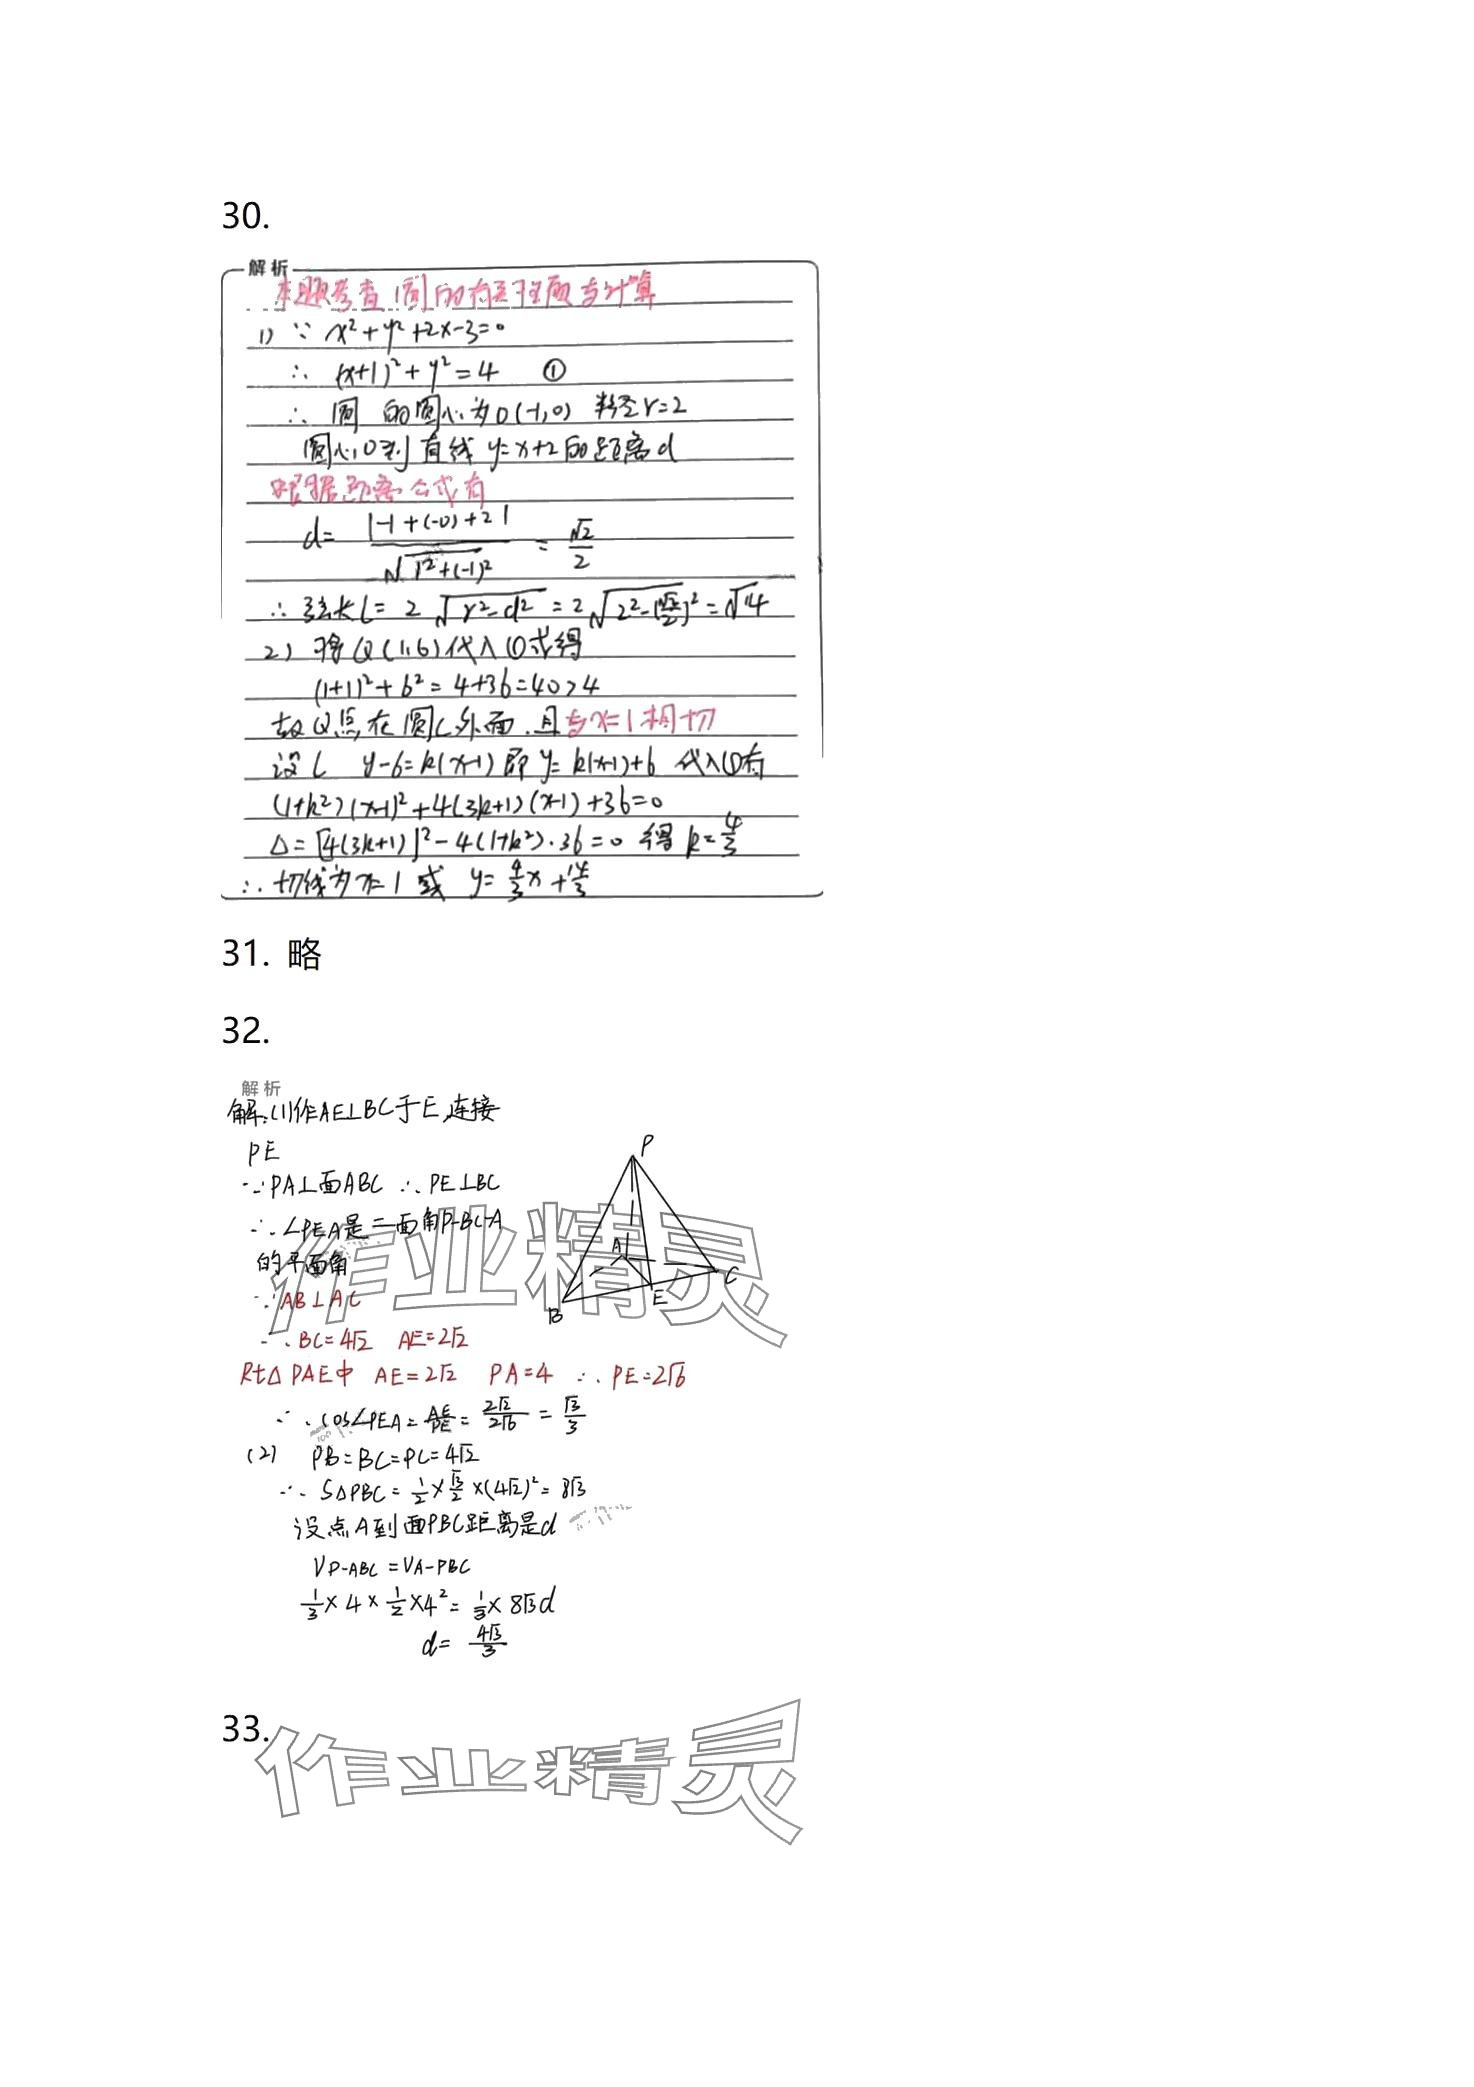 30.
解析
本题考查圆的有关性质与计算
1) ∵ x²+y²+2x-3=0
∴ (x+1)²+y²=4 ①
∴ 圆 的圆心为O(-1,0) 半径r=2
圆心O到直线 y=x+2的距离d
根据距离公式有
d= |-1+(-0)+2| / √(1²+(-1)²) = √2/2
∴ 弦长l= 2√(r²-d²) = 2√(2²-(√2/2)²) = √14
2) 将Q(1,6)代入①式得
(1+1)²+6²=4+36=40>4
故Q点在圆C外面,且与x=1相切
设l y-6=k(x-1)即y=k(x-1)+6 代入①有
(1+k²)(x-1)²+4(3k+1)(x-1)+36=0
Δ=[4(3k+1)]²-4(1+k²)·36=0 得 k=4/3
∴切线为x=1 或 y=4/3x+14/3
31. 略
32.
解析
解:(1)作AE⊥BC于E,连接
PE
∵PA⊥面ABC ∴PE⊥BC
∴∠PEA是二面角P-BC-A
的平面角
∵AB⊥AC
∴BC=4√2 AE=2√2
Rt△PAE中 AE=2√2 PA=4 ∴PE=2√6
∴cos∠PEA=AE/PE=2√2/2√6=√3/3
(2) PB=BC=PC=4√2
∴S△PBC=1/2×√3/2×(4√2)²=8√3
设点A到面PBC距离是d
VP-ABC=VA-PBC
1/3×4×1/2×4²=1/3×8√3d
d=4√3/3
P
A
B
E
C
作业精灵
33.
作业精灵